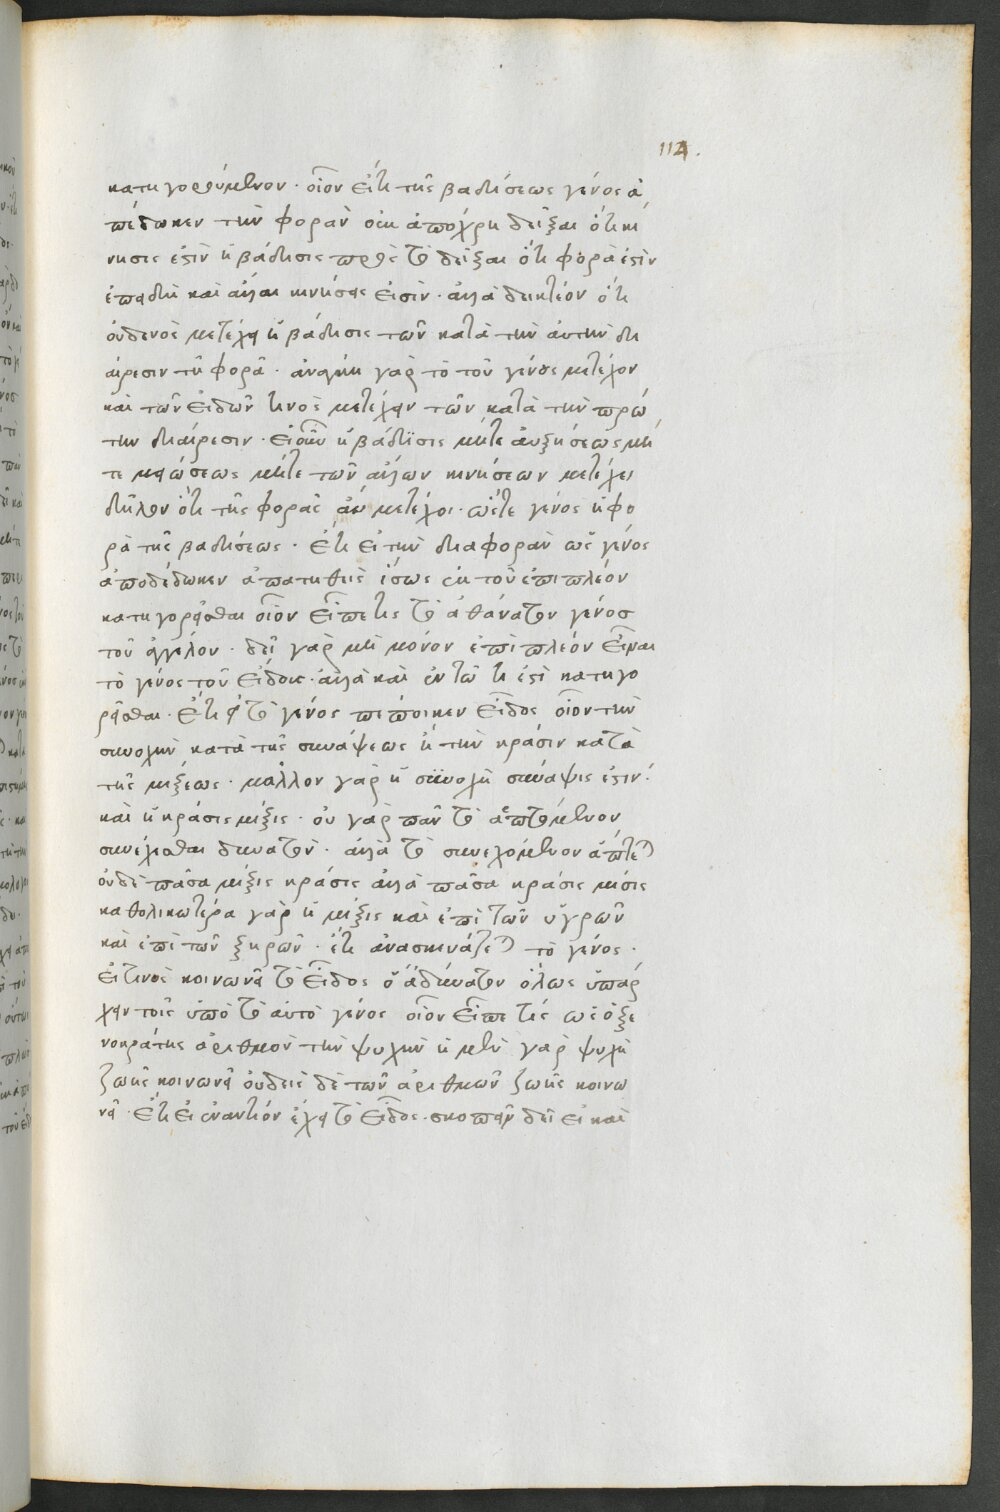 114.
κατηγορούμενον· οἷον εἴ τι τῆς βαδίσεως γένος ἀ
πέδωκεν τὴν φορὰν οὐκ ἀπόχρη δεῖξαι ὅτι κί
νησις ἐστὶν ἡ βάδισις πρὸς τὸ δεῖξαι ὅτι φορά ἐστὶν
ἐπειδὴ καὶ ἄλλαι κινήσεις εἰσὶν· ἀλλὰ δεικτέον ὅτι
οὐδενὸς μετέχει ἡ βάδισις τῶν κατὰ τὴν αὐτὴν δι
αίρεσιν τῇ φορᾷ· ἀνάγκη γὰρ τὸ τοῦ γένους μετέχον
καὶ τῶν εἰδῶν τινὸς μετέχειν τῶν κατὰ τὴν πρώ
την διαίρεσιν· εἰ οὖν ἡ βάδϊσις μήτε αὐξήσεως μή
τε μειώσεως μήτε τῶν ἄλλων κινήσεων μετέχει
δῆλον ὅτι τῆς φορᾶς ἂν μετέχοι· ὥστε γένος ἡ φο
ρὰ τῆς βαδίσεως· ἔτι εἰ τὴν διαφορὰν ὡς γένος
ἀποδέδωκεν ἀπατηθεὶς ἴσως ἐκ τοῦ ἐπιπλέον
κατηγορεῖσθαι οἷον εἶπέ τις τὸ ἀθάνατον γένος
τοῦ ἀγγέλου· δεῖ γὰρ μὴ μόνον ἐπὶ πλέον εἶναι
τὸ γένος τοῦ εἴδους· ἀλλὰ καὶ ἐν τῷ τί ἐστὶ κατηγο
ρεῖσθαι· ἔτι εἰ τὸ γένος πεποίηκεν εἶδος οἷον τὴν
συνοχὴν κατὰ τῆς συνάψεως ἢ τὴν κράσιν κατὰ
τῆς μίξεως· μᾶλλον γὰρ ἡ συνοχὴ σύναψις ἐστιν·
καὶ ἡ κράσις μίξις· οὐ γὰρ πᾶν τὸ ἁπτόμενον
συνέχεσθαι δυνατὸν· ἀλλὰ τὸ συνεχόμενον ἅπτεται
οὐδὲ πᾶσα μίξις κράσις ἀλλὰ πᾶσα κράσις μίσις
καθολικωτέρα γὰρ ἡ μίξις καὶ ἐπὶ τῶν ὑγρῶν
καὶ ἐπὶ τῶν ξηρῶν· ἔτι ἀνασκευάζεται τὸ γένος·
εἴ τινος κοινωνεῖ τὸ εἶδος ὃ ἀδύνατον ὅλως ὑπάρ
χειν τοῖς ὑπὸ τὸ αὐτὸ γένος οἷον εἶπέ τίς ὡς ὁ ξε
νοκράτης ἀριθμὸν τὴν ψυχὴν ἡ μὲν γὰρ ψυχὴ
ζωῆς κοινωνεῖ οὐδεὶς δὲ τῶν ἀριθμῶν ζωῆς κοινω
νεῖ· ἔτι εἰ ἐναντίον ἔχει τὸ εἶδος· σκοπεῖν δεῖ εἰ καὶ